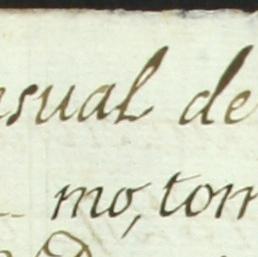 sual de
mo, tom